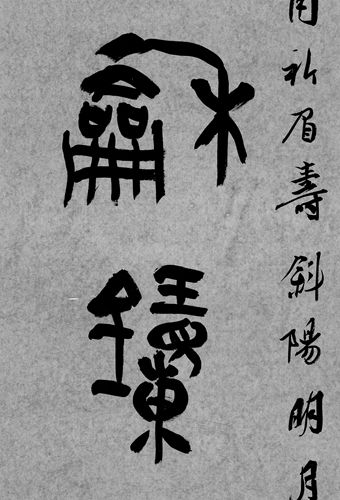 用祈眉壽斜陽明月
龢鐘